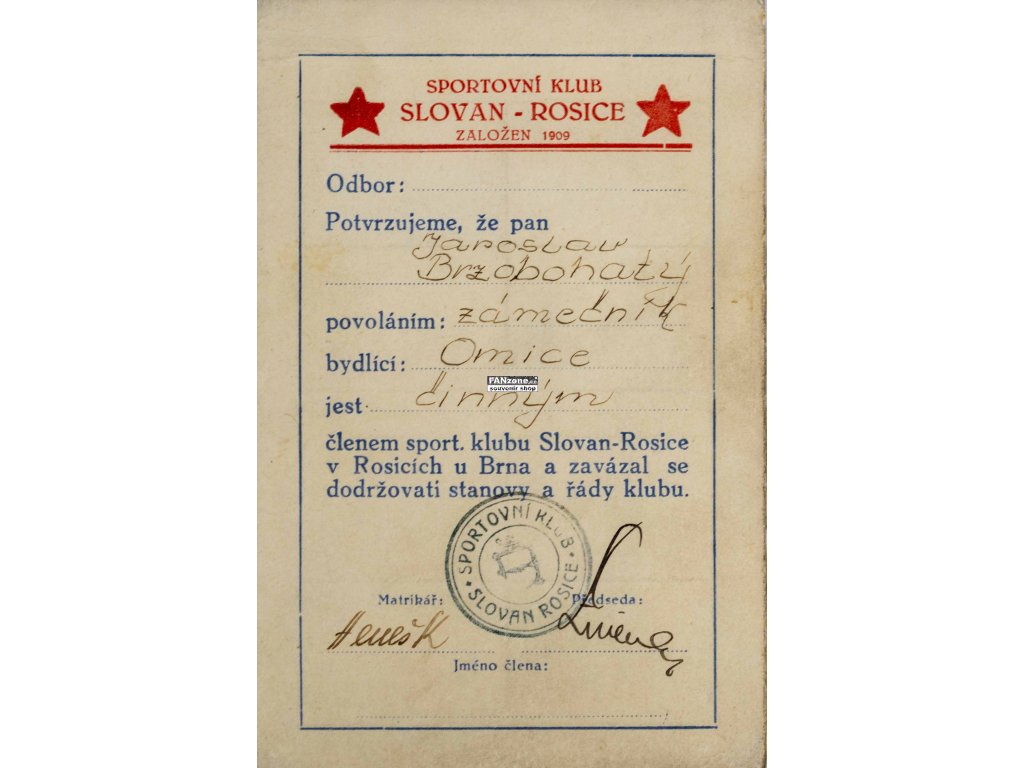 SPORTOVNÍ KLUB
SLOVAN - ROSICE
ZALOŽEN 1909
Odbor:
Potvrzujeme, že pan
Jaroslav
Brzobohatý
povoláním: zámečník
bydlící: Omice
FANzone.cz
souvenir shop
jest činným
členem sport. klubu Slovan-Rosice
v Rosicích u Brna a zavázal se
dodržovati stanovy a řády klubu.
SPORTOVNÍ KLUB
SLOVAN ROSICE
Matrikář: Předseda:
Jméno člena: